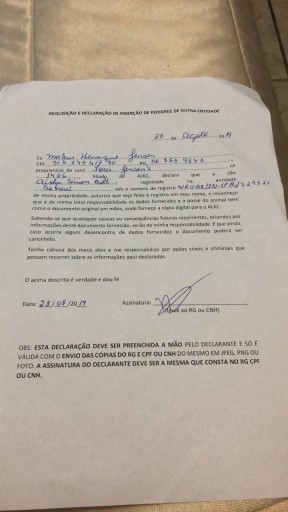 REQUISIÇÃO E DECLARAÇÃO DE INSERÇÃO DE PEDIGREE DE OUTRA ENTIDADE
28 de Agosto 2019
Eu Mateus Henrique Jensen
CPF RG
proprietário do canil Jensen's nº
1466 filiado ao ALRC, declaro que o cão
registrado na entidade
Sobraci sob o número de registro
de minha propriedade, autorizo que seja feito o registro em meu nome, e reconheço
que é de minha total responsabilidade os dados fornecidos e a posse do animal bem
como o documento original em mãos, onde forneço a cópia digital para o ALRC.
Sabendo-se que quaisquer causas ou consequências futuras resultantes, oriundas por
informações deste documento fornecido, serão de minha responsabilidade. E que ainda,
caso ocorra algum desencontro de dados fornecidos o documento poderá ser
cancelado.
Tenho ciência dos meus atos e me responsabilizo por ações cíveis e criminais que
possam recorrer sobre as informações aqui declaradas.
O acima descrito é verdade e dou fé
Data: 28/08/2019 Assinatura:
(Igual ao RG ou CNH)
OBS: ESTA DECLARAÇÃO DEVE SER PREENCHIDA A MÃO PELO DECLARANTE E SÓ É
VÁLIDA COM O ENVIO DAS CÓPIAS DO RG E CPF OU CNH DO MESMO EM JPEG, PNG OU
FOTO. A ASSINATURA DO DECLARANTE DEVE SER A MESMA QUE CONSTA NO RG CPF
OU CNH.